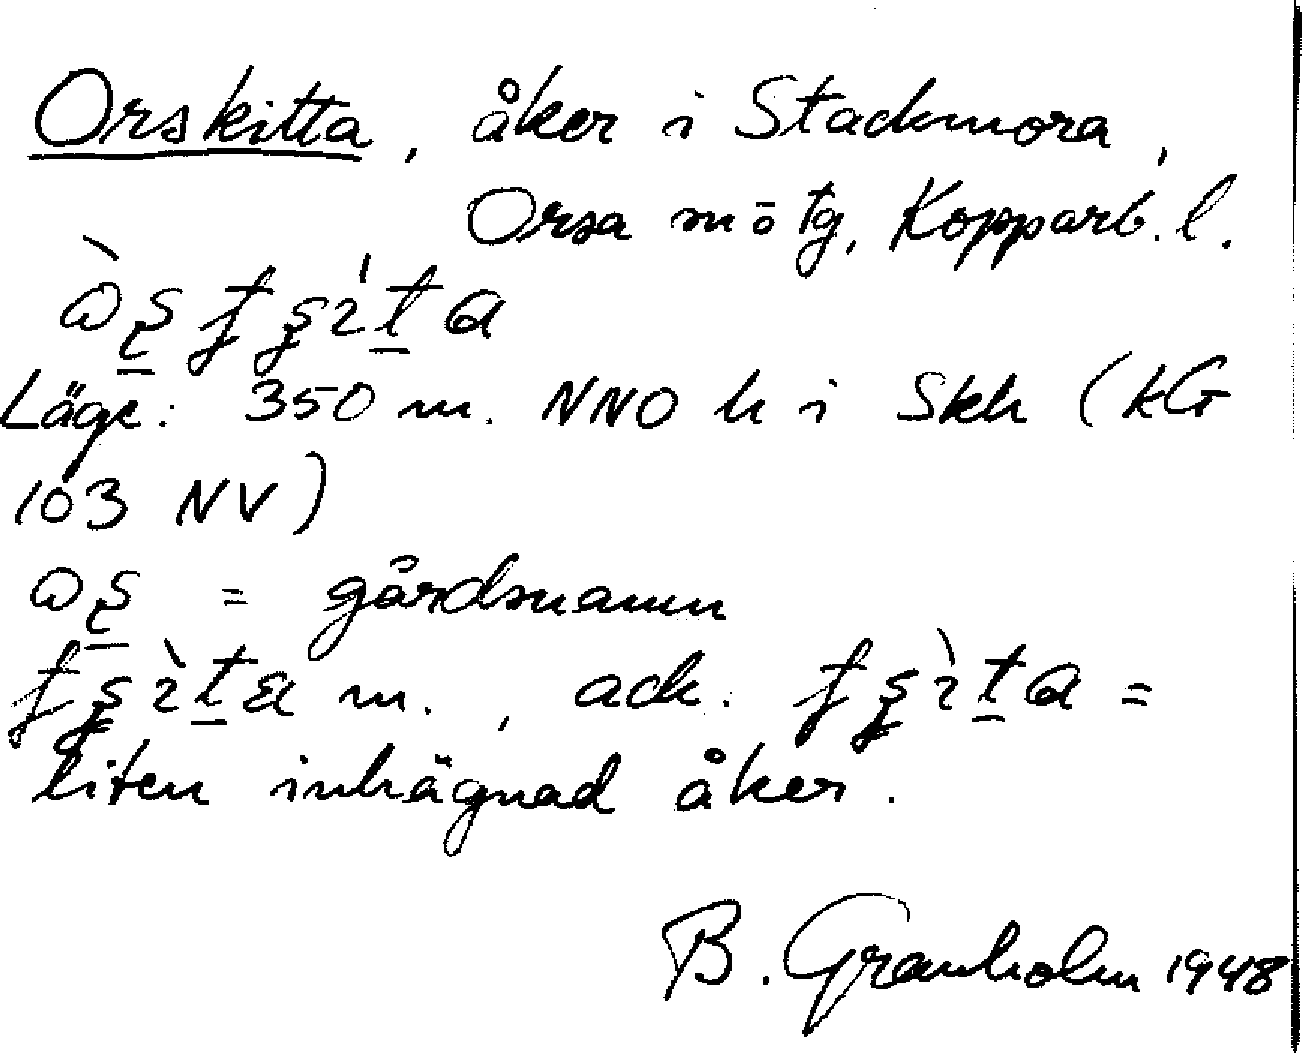 Orskitta, åker i Stackmora,
Orsa mötg, Kopparb. l.
Läge: 350 m. NNO k i Skk (kG
103 NV)
= gårdsnamn
m., ack. =
liten inhägnad åker.
B. Granholm 1948